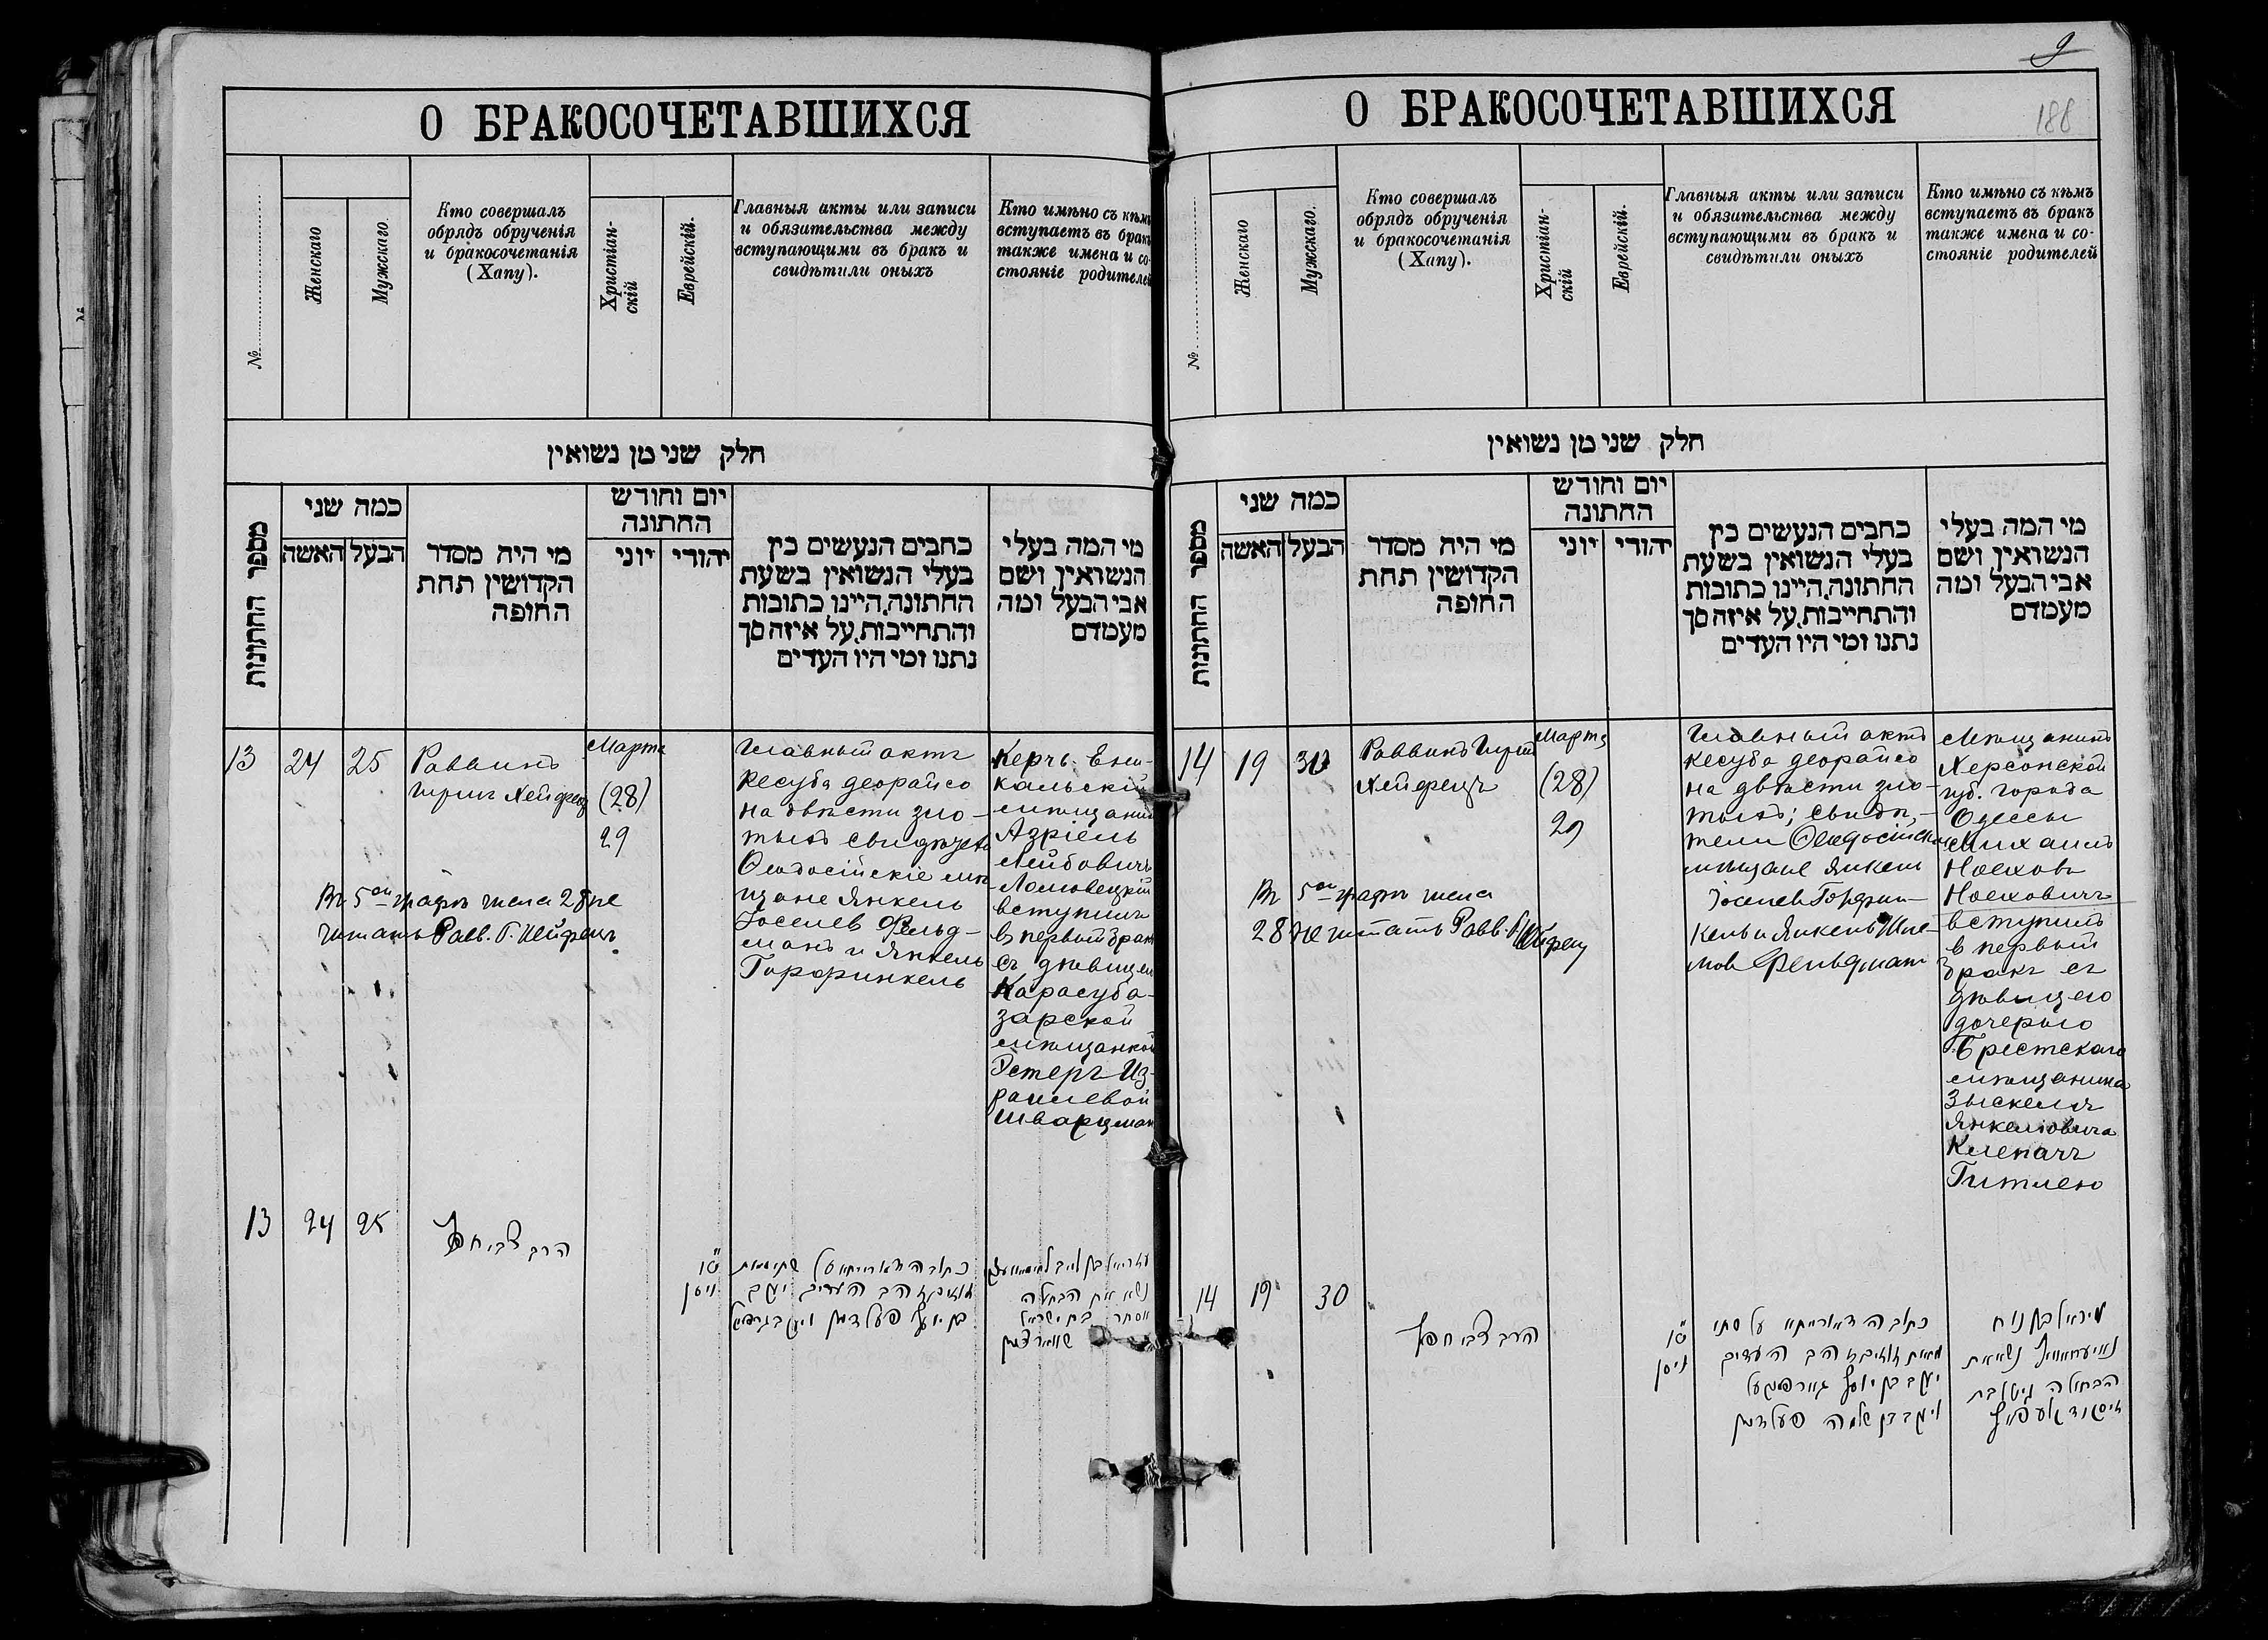 О БРАКОСОЧЕТАВШИХСЯ
№
Женскаго
Мужскаго.
Кто совершалъ
обрядъ обрученія
и бракосочетанія
(Хапу).
Христіан-
скій
Еврейскій.
Главныя акты или записи
и обязательства между
вступающими въ бракъ и
свидѣтили оныхъ
Кто имѣно съ кѣмъ
вступаетъ въ бракъ
также имена и со-
стояніе родителей
חלק שני מן נשואין
מספר החתונות
כמה שני
האשה
הבעל
מי היה מסדר
הקדושין תחת
החופה
יום וחודש
החתונה
יוני
יהודי
כתבים הנעשים בין
בעלי הנשואין בשעת
החתונה, היינו כתובות
והתחייבות, על איזה סך
נתנו ומי היו העדים
מי המה בעלי
הנשואין ושם
אבי הבעל ומה
מעמדם
13
24
25
Раввинъ
Гирш Хейфецъ
Марта
(28)
29
Главный актъ
кесуба деорайсо
на двѣсти зло-
тыхъ
Ѳеодосійскіе мѣ-
щане Янкель
Іоселев Фельд-
манъ и Янкель
Горфинкель
Керчь-Ени-
кальскій
мѣщанинъ
Азріель
Лейбовичъ
вступилъ
въ первый бракъ
съ дѣвицею
Карасуба-
зарской
мѣщанкой
Эстеръ Из-
раилевой
Шварцман
Въ 5ой графѣ числа 28 не
читать Равв. Г. Хейфецъ
13
24
25
הרב צבי חפץ
ט"ו
ניסן
כתובה דאורייתא על שתי מאות
זוזים זהב העדים יעקב
בן יוסף פעלדמן
נשא את הבתולה
אסתר בת ישראל
שווארצמן
9
188
О БРАКОСОЧЕТАВШИХСЯ
№
Женскаго
Мужскаго.
Кто совершалъ
обрядъ обрученія
и бракосочетанія
(Хапу).
Христіан-
скій
Еврейскій.
Главныя акты или записи
и обязательства между
вступающими въ бракъ и
свидѣтили оныхъ
Кто имѣно съ кѣмъ
вступаетъ въ бракъ
также имена и со-
стояніе родителей
חלק שני מן נשואין
מספר החתונות
כמה שני
האשה
הבעל
מי היה מסדר
הקדושין תחת
החופה
יום וחודש
החתונה
יוני
יהודי
כתבים הנעשים בין
בעלי הנשואין בשעת
החתונה, היינו כתובות
והתחייבות, על איזה סך
נתנו ומי היו העדים
מי המה בעלי
הנשואין ושם
אבי הבעל ומה
מעמדם
14
19
30
Раввинъ Гирш
Хейфецъ
Марта
(28)
29
Главный актъ
кесуба деорайсо
на двѣсти зло-
тыхъ; свидѣ-
тели Ѳеодосійскіе
мѣщане Янкель
Іоселев Горфин-
кель и Янкель Шле-
мов Фельдман
Мѣщанинъ
Херсонской
губ. города
Одессы
Михаилъ
Ноехов
Ноеховичъ
вступилъ
въ первый
бракъ съ
дѣвицею
дочерью
Брестскаго
мѣщанина
Зыскеля
Янкелевича
Клепачъ
Гитлею
Въ 5ой графѣ числа
28 не читать Равв. Г. Хейфец
14
19
30
הרב צבי חפץ
ט"ו
ניסן
כתובה דאורייתא על שתי
מאות זוזים זהב העדים
יעקב בן יוסף גארפינקעל
ויעקב בן שלמה פעלדמן
בן נוח
נשא את
הבתולה גיטל בת